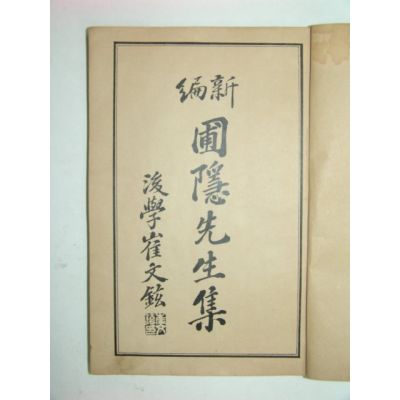 新編
圃隱先生集
後學崔文鎡